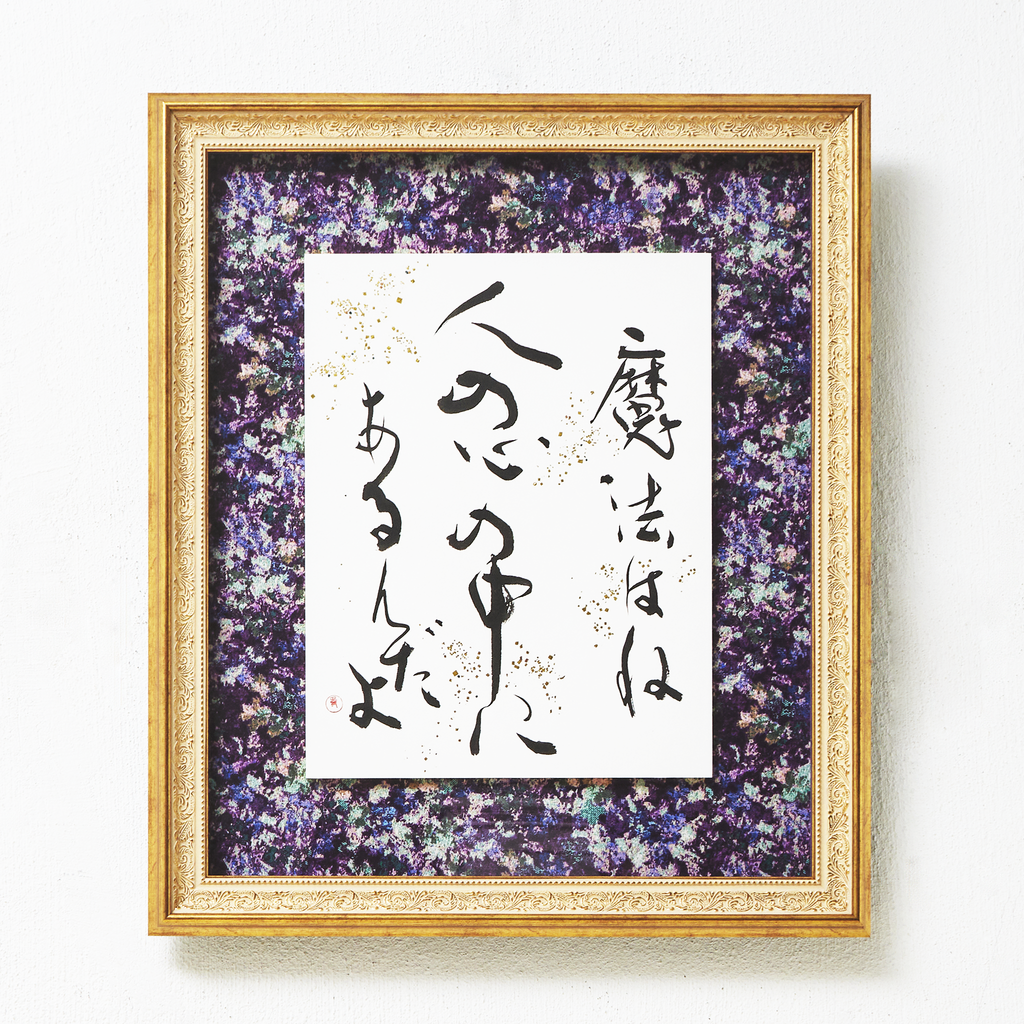 魔法はね
人の心の中に
あるんだよ